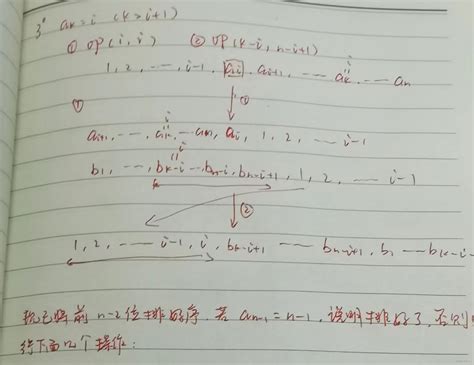 3° aₖ=i (k>i+1)
① op(i,i) ② op(k-i, n-i+1)
1, 2, ⋯, i-1, aᵢ, aᵢ₊₁, ⋯ aₖ, ⋯ aₙ
i
① ①
i
aᵢ₊₁, ⋯, aₖ, ⋯ aₙ, aᵢ, 1, 2, ⋯ i-1
i
b₁, ⋯, bₖ₋ᵢ ⋯ bₙ₋ᵢ, bₙ₋ᵢ₊₁, 1, 2, ⋯ i-1
②
1, 2, ⋯ i-1, i, bₖ₋ᵢ₊₁ ⋯ bₙ₋ᵢ₊₁, b₁ ⋯ bₖ₋ᵢ₋
我已将前 n-2 位排好序. 若 aₙ₋₁ = n-1, 说明排好了, 否则
下面几个操作: